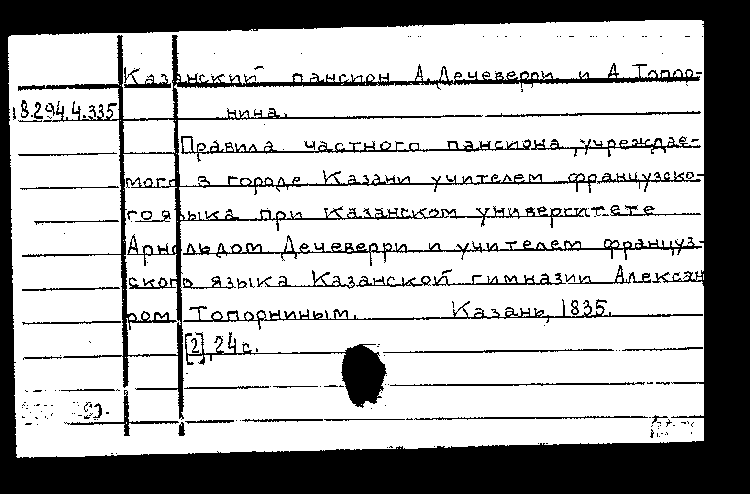 Казанский пансион А. Дечеверри и А. Топор-
18.294.4.335 нина.
Правила частного пансиона, учреждае-
мого в городе Казани учителем французско-
го языка при Казанском университете
Арнольдом Дечеверри и учителем француз-
ского языка Казанской гимназии Александ
ром Топорниным. Казань, 1835.
[2], 24 с.